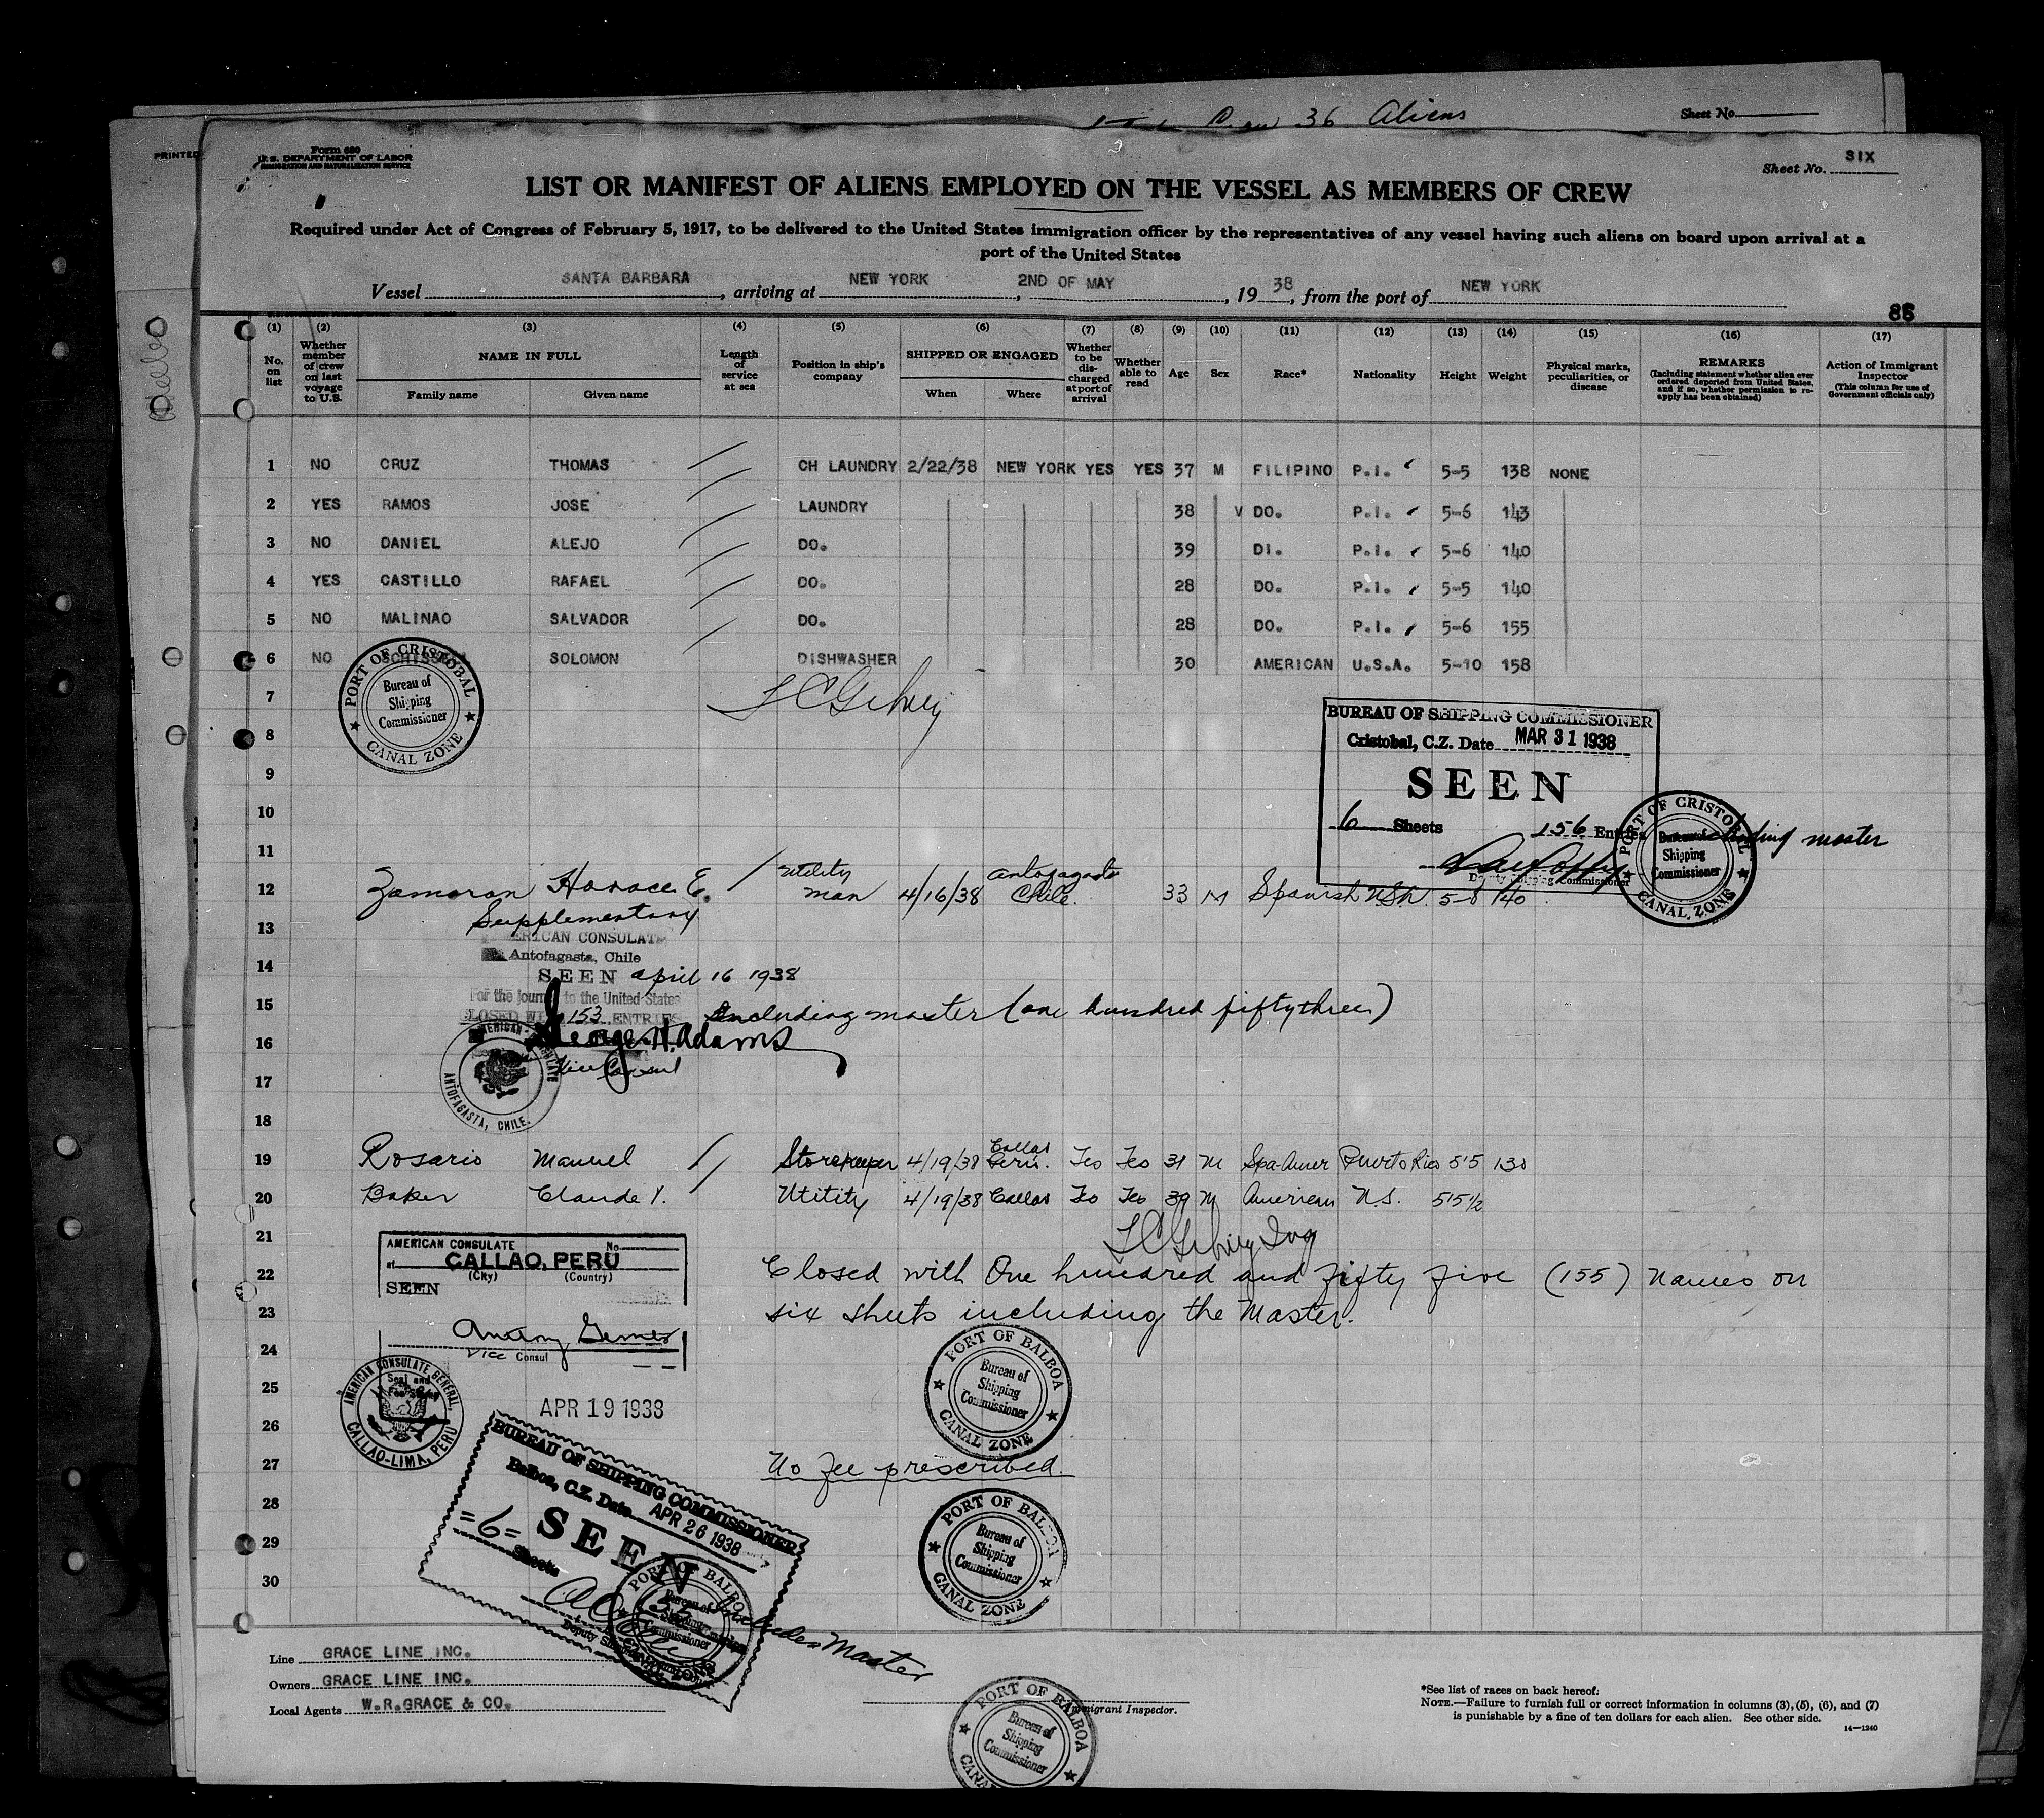 36 Aliens
Sheet No.
PRINTED
Form 680
U. S. DEPARTMENT OF LABOR
IMMIGRATION AND NATURALIZATION SERVICE
Sheet No. SIX
LIST OR MANIFEST OF ALIENS EMPLOYED ON THE VESSEL AS MEMBERS OF CREW
Required under Act of Congress of February 5, 1917, to be delivered to the United States immigration officer by the representatives of any vessel having such aliens on board upon arrival at a
port of the United States
Vessel SANTA BARBARA, arriving at NEW YORK, 2ND OF MAY, 19 38, from the port of NEW YORK
(1) (2) (3) (4) (5) (6) (7) (8) (9) (10) (11) (12) (13) (14) (15) (16) (17)
No. on list
Whether member of crew on last voyage to U.S.
NAME IN FULL
Family name Given name
Length of service at sea
Position in ship's company
SHIPPED OR ENGAGED
When Where
Whether to be discharged at port of arrival
Whether able to read
Age
Sex
Race*
Nationality
Height
Weight
Physical marks, peculiarities, or disease
REMARKS
(Including statement whether alien ever ordered deported from United States, and if so, whether permission to re-apply has been obtained)
Action of Immigrant Inspector
(This column for use of Government officials only)
1 NO CRUZ THOMAS CH LAUNDRY 2/22/38 NEW YORK YES YES 37 M FILIPINO P.I. 5-5 138 NONE
2 YES RAMOS JOSE LAUNDRY 38 V DO. P.I. 5-6 143
3 NO DANIEL ALEJO DO. 39 DI. P.I. 5-6 140
4 YES CASTILLO RAFAEL DO. 28 DO. P.I. 5-5 140
5 NO MALINAO SALVADOR DO. 28 DO. P.I. 5-6 155
6 NO SOLOMON DISHWASHER 30 AMERICAN U.S.A. 5-10 158
PORT OF CRISTOBAL
Bureau of
Shipping
Commissioner
CANAL ZONE
7
8
9
10
11
BUREAU OF SHIPPING COMMISSIONER
Cristobal, C.Z. Date MAR 31 1938
SEEN
6 Sheets 156 Entries including master
Deputy Shipping Commissioner
PORT OF CRISTOBAL
Bureau of
Shipping
Commissioner
CANAL ZONE
12 Zamoran Horace E. Utility man 4/16/38 Antofagasta Chile. 33 M Spanish USA 5-8 140
13 Supplementary
AMERICAN CONSULATE
14 Antofagasta, Chile
SEEN April 16 1938
15 For the journey to the United States
CLOSED WITH 153 ENTRIES Including master (one hundred fifty three)
16 George H. Adams
Vice Consul
AMERICAN CONSULATE
ANTOFAGASTA, CHILE.
17
18
19 Rosario Manuel Storekeeper 4/19/38 Callao Peru. Yes Yes 31 M Spa-Amer Puerto Rico 5'5 130
20 Baker Claude Y. Utitity 4/19/38 Callao Yes Yes 39 M American U.S. 5'5 1/2
21
AMERICAN CONSULATE No.
at CALLAO, PERU
(City) (Country)
SEEN
22 Closed with One hundred and fifty five (155) names on
23 six sheets including the Master.
24
Vice Consul
AMERICAN CONSULATE GENERAL,
CALLAO-LIMA, PERU
25
APR 19 1938
PORT OF BALBOA
Bureau of
Shipping
Commissioner
CANAL ZONE
26
27 No fee prescribed.
28
BUREAU OF SHIPPING COMMISSIONER
Balboa, C.Z. Date APR 26 1938
SEEN
=6= Sheets
Includes Master
PORT OF BALBOA
Bureau of
Shipping
Commissioner
CANAL ZONE
29
30
PORT OF BALBOA
Bureau of
Shipping
Commissioner
CANAL ZONE
Line GRACE LINE INC.
Owners GRACE LINE INC.
Local Agents W.R.GRACE & CO.
Immigrant Inspector.
PORT OF BALBOA
Bureau of
Shipping
Commissioner
*See list of races on back hereof.
NOTE.—Failure to furnish full or correct information in columns (3), (5), (6), and (7)
is punishable by a fine of ten dollars for each alien. See other side.
14—1240